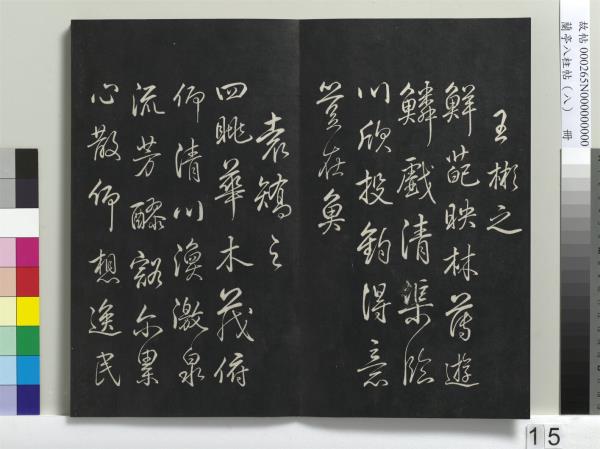 故帖 000265N000000000
蘭亭八柱帖(八) 冊
王彬之
鮮葩映林薄遊
鱗戲清渠臨
川欣投釣得意
豈在魚
袁嶠之
四眺華木茂俯
仰清川渙激泉
流芳醪豁尔累
心散仰想逸民
15